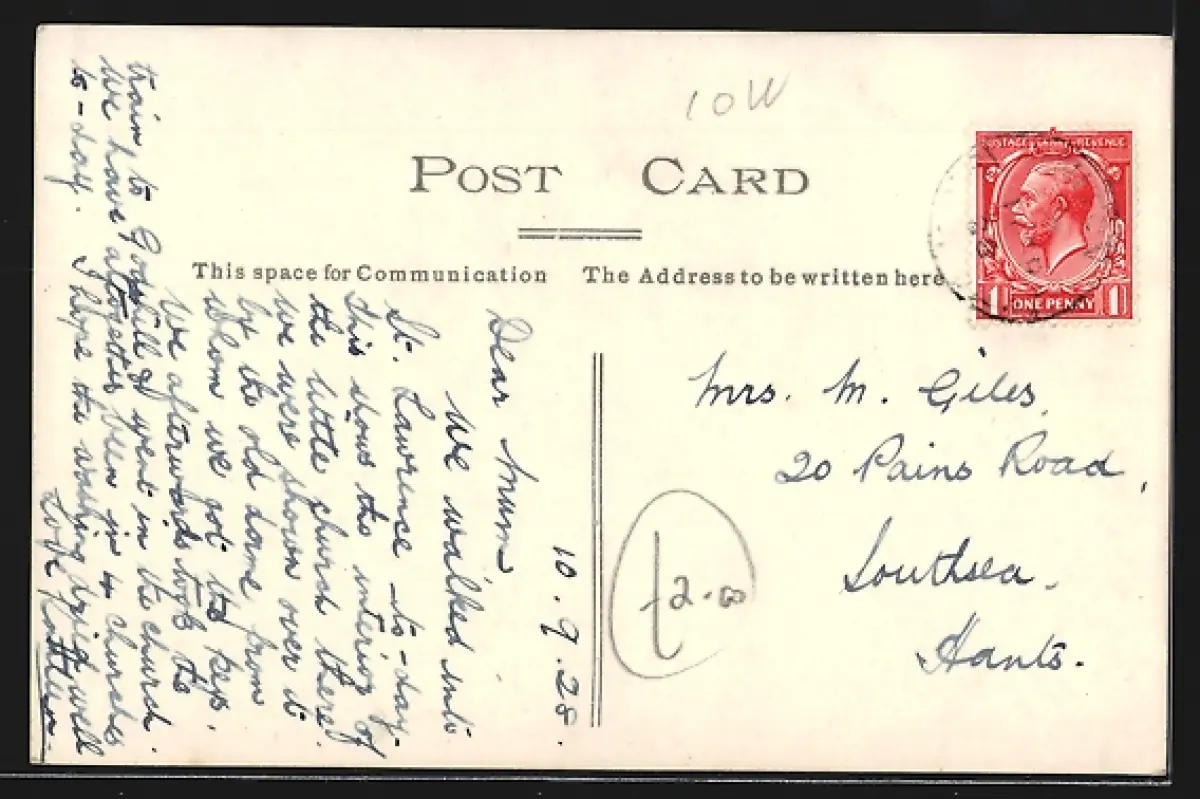 10W
POST CARD
POSTAGE REVENUE
1 ONE PENNY 1
This space for Communication
The Address to be written here
10.9.28.
Dear Mum
We walked into
St. Lawrence to-day.
this shows the interior of
the little church there.
we were shown over it
by the old dame from
whom we got the keys.
We afterwards took the
train to Godshill & went in the church.
We have altogether been in 4 churches
to-day. I hope the washing dried well
Love Kathleen.
Mrs. M. Giles,
20 Pains Road,
Southsea.
Hants.
£2.00